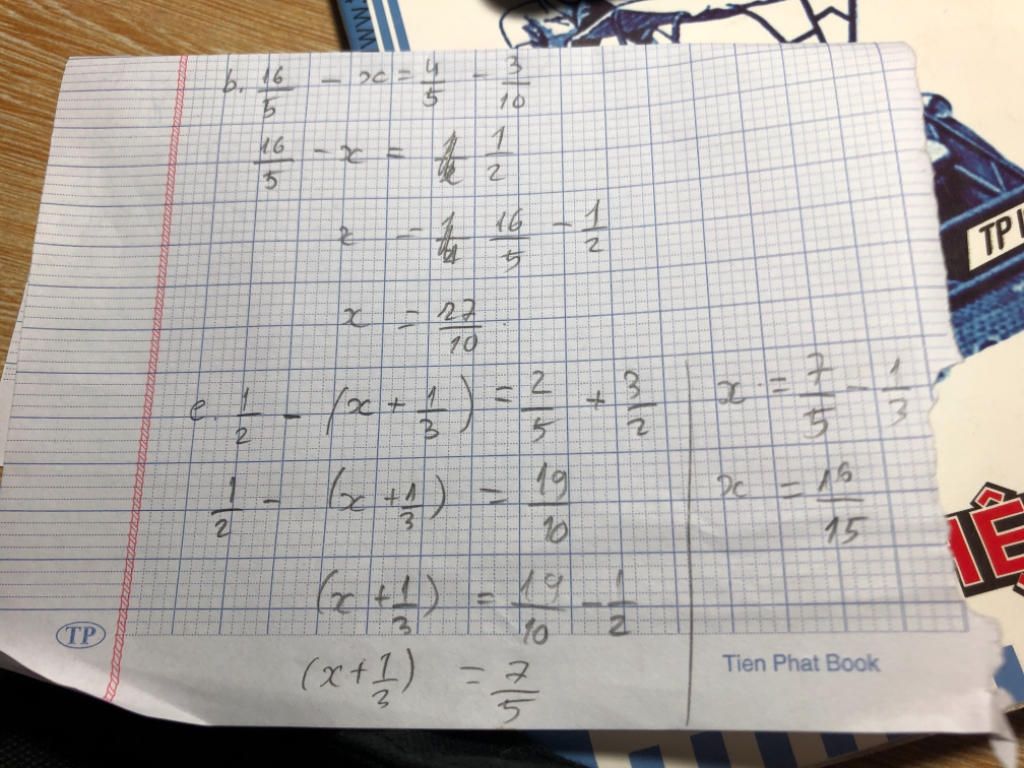 b. 16/5 - x = 4/5 - 3/10
16/5 - x = 1/2
x = 16/5 - 1/2
x = 27/10
e. 1/2 - (x + 1/3) = 2/5 + 3/2
1/2 - (x + 1/3) = 19/10
(x + 1/3) = 19/10 - 1/2
(x + 1/3) = 7/5
x = 7/5 - 1/3
x = 16/15
TP
Tien Phat Book
WW.